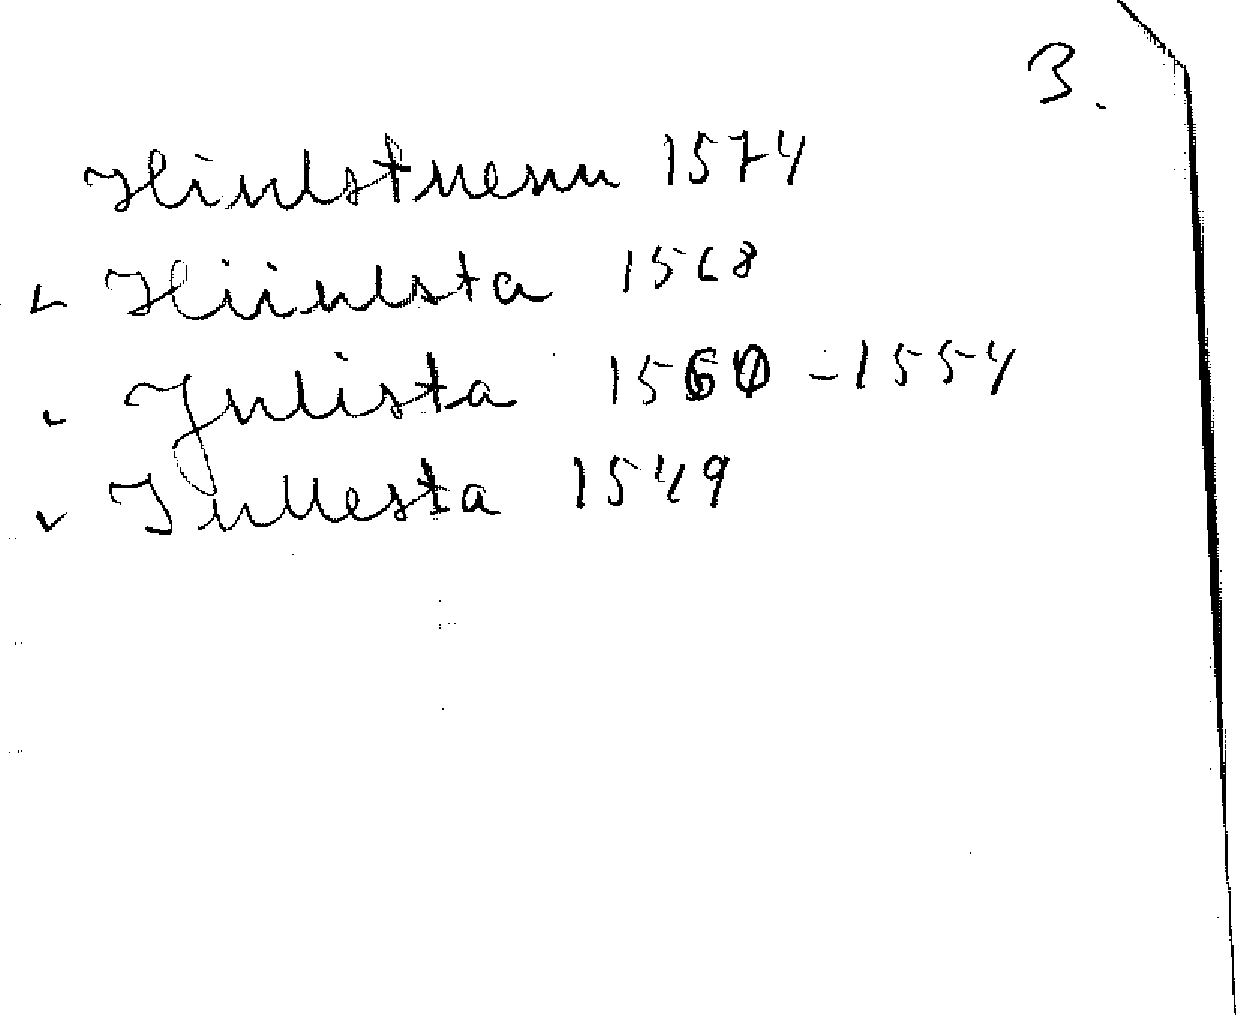 3.
Hinlstuenn 1574
Hiinlsta 1568
Julista 1560 - 1554
Inllesta 1549